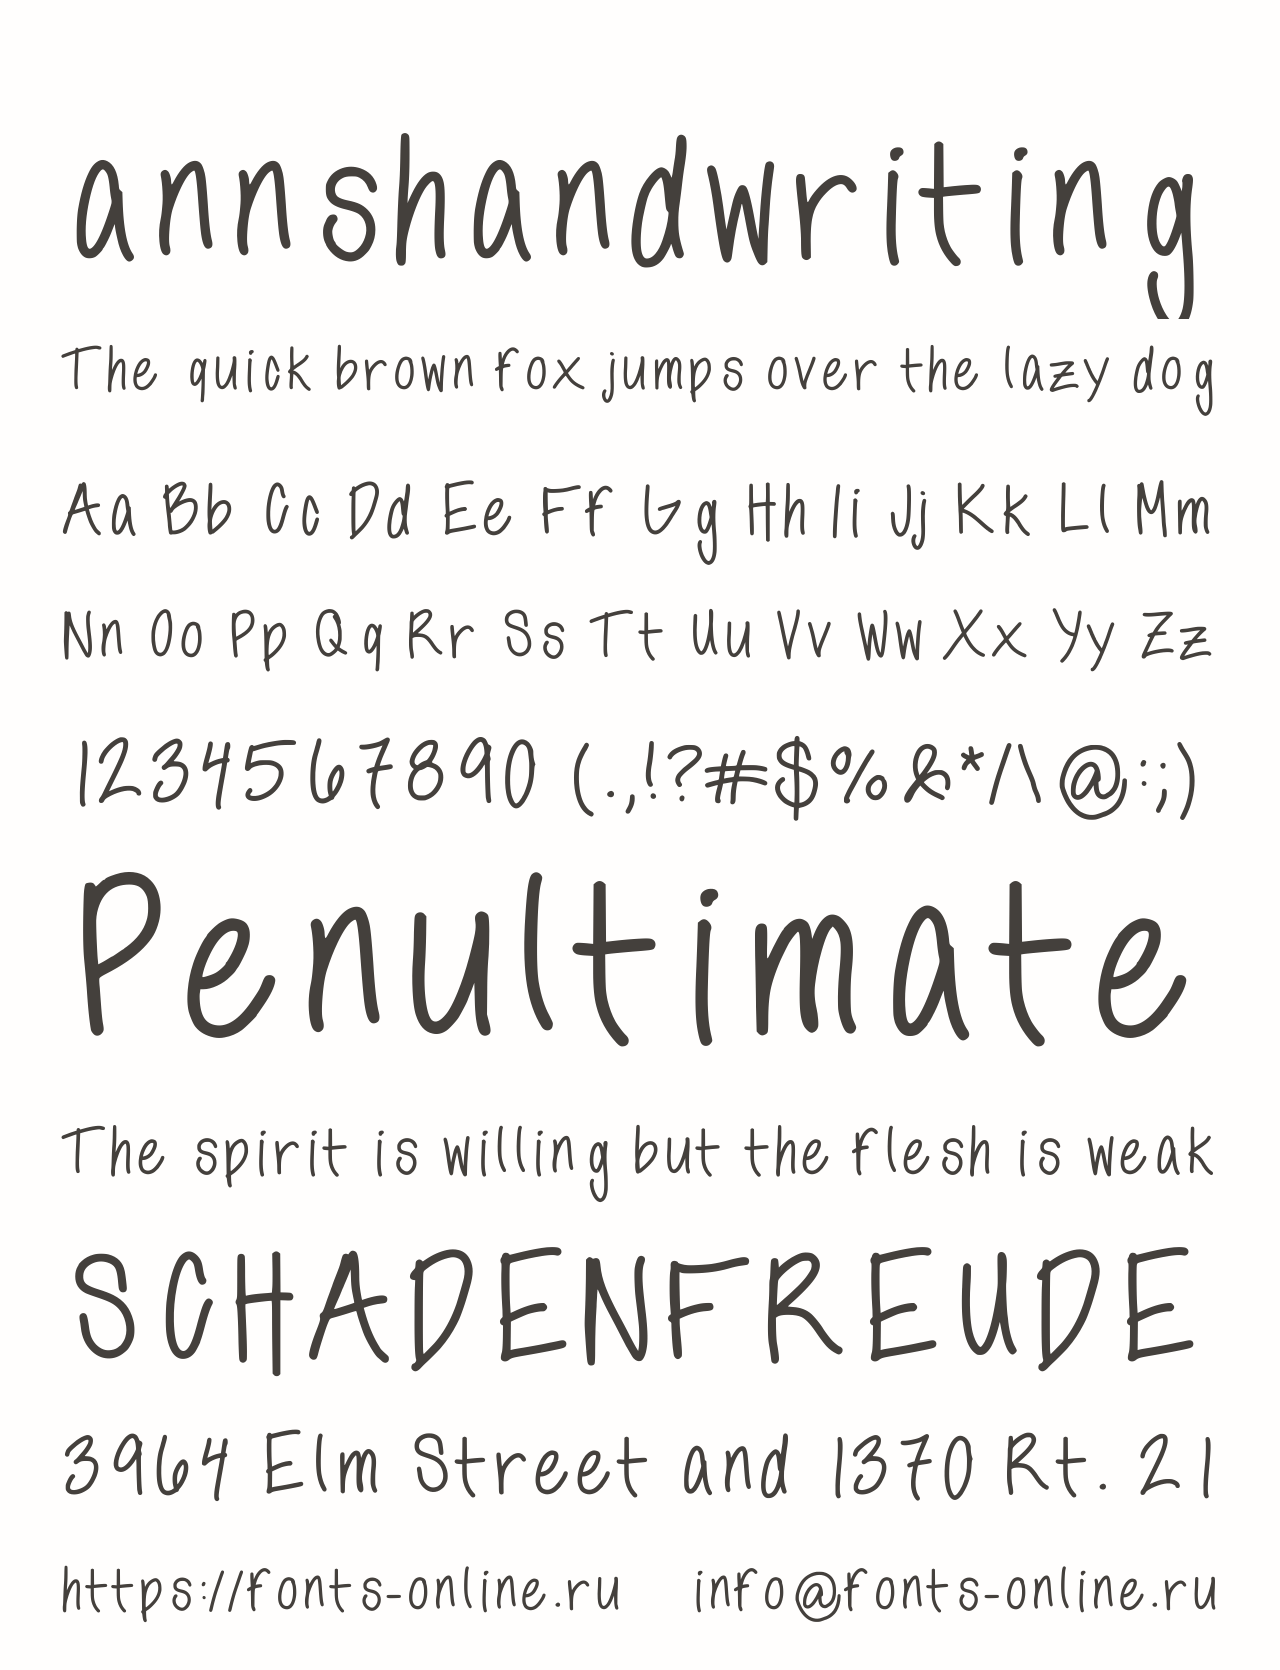 annshandwriting
The quick brown fox jumps over the lazy dog
Aa Bb Cc Dd Ee Ff Gg Hh Ii Jj Kk Ll Mm
Nn Oo Pp Qq Rr Ss Tt Uu Vv Ww Xx Yy Zz
1234567890 (.,!?#$%&*/\@:;)
Penultimate
The spirit is willing but the flesh is weak
SCHADENFREUDE
3964 Elm Street and 1370 Rt. 21
https://fonts-online.ru info@fonts-online.ru